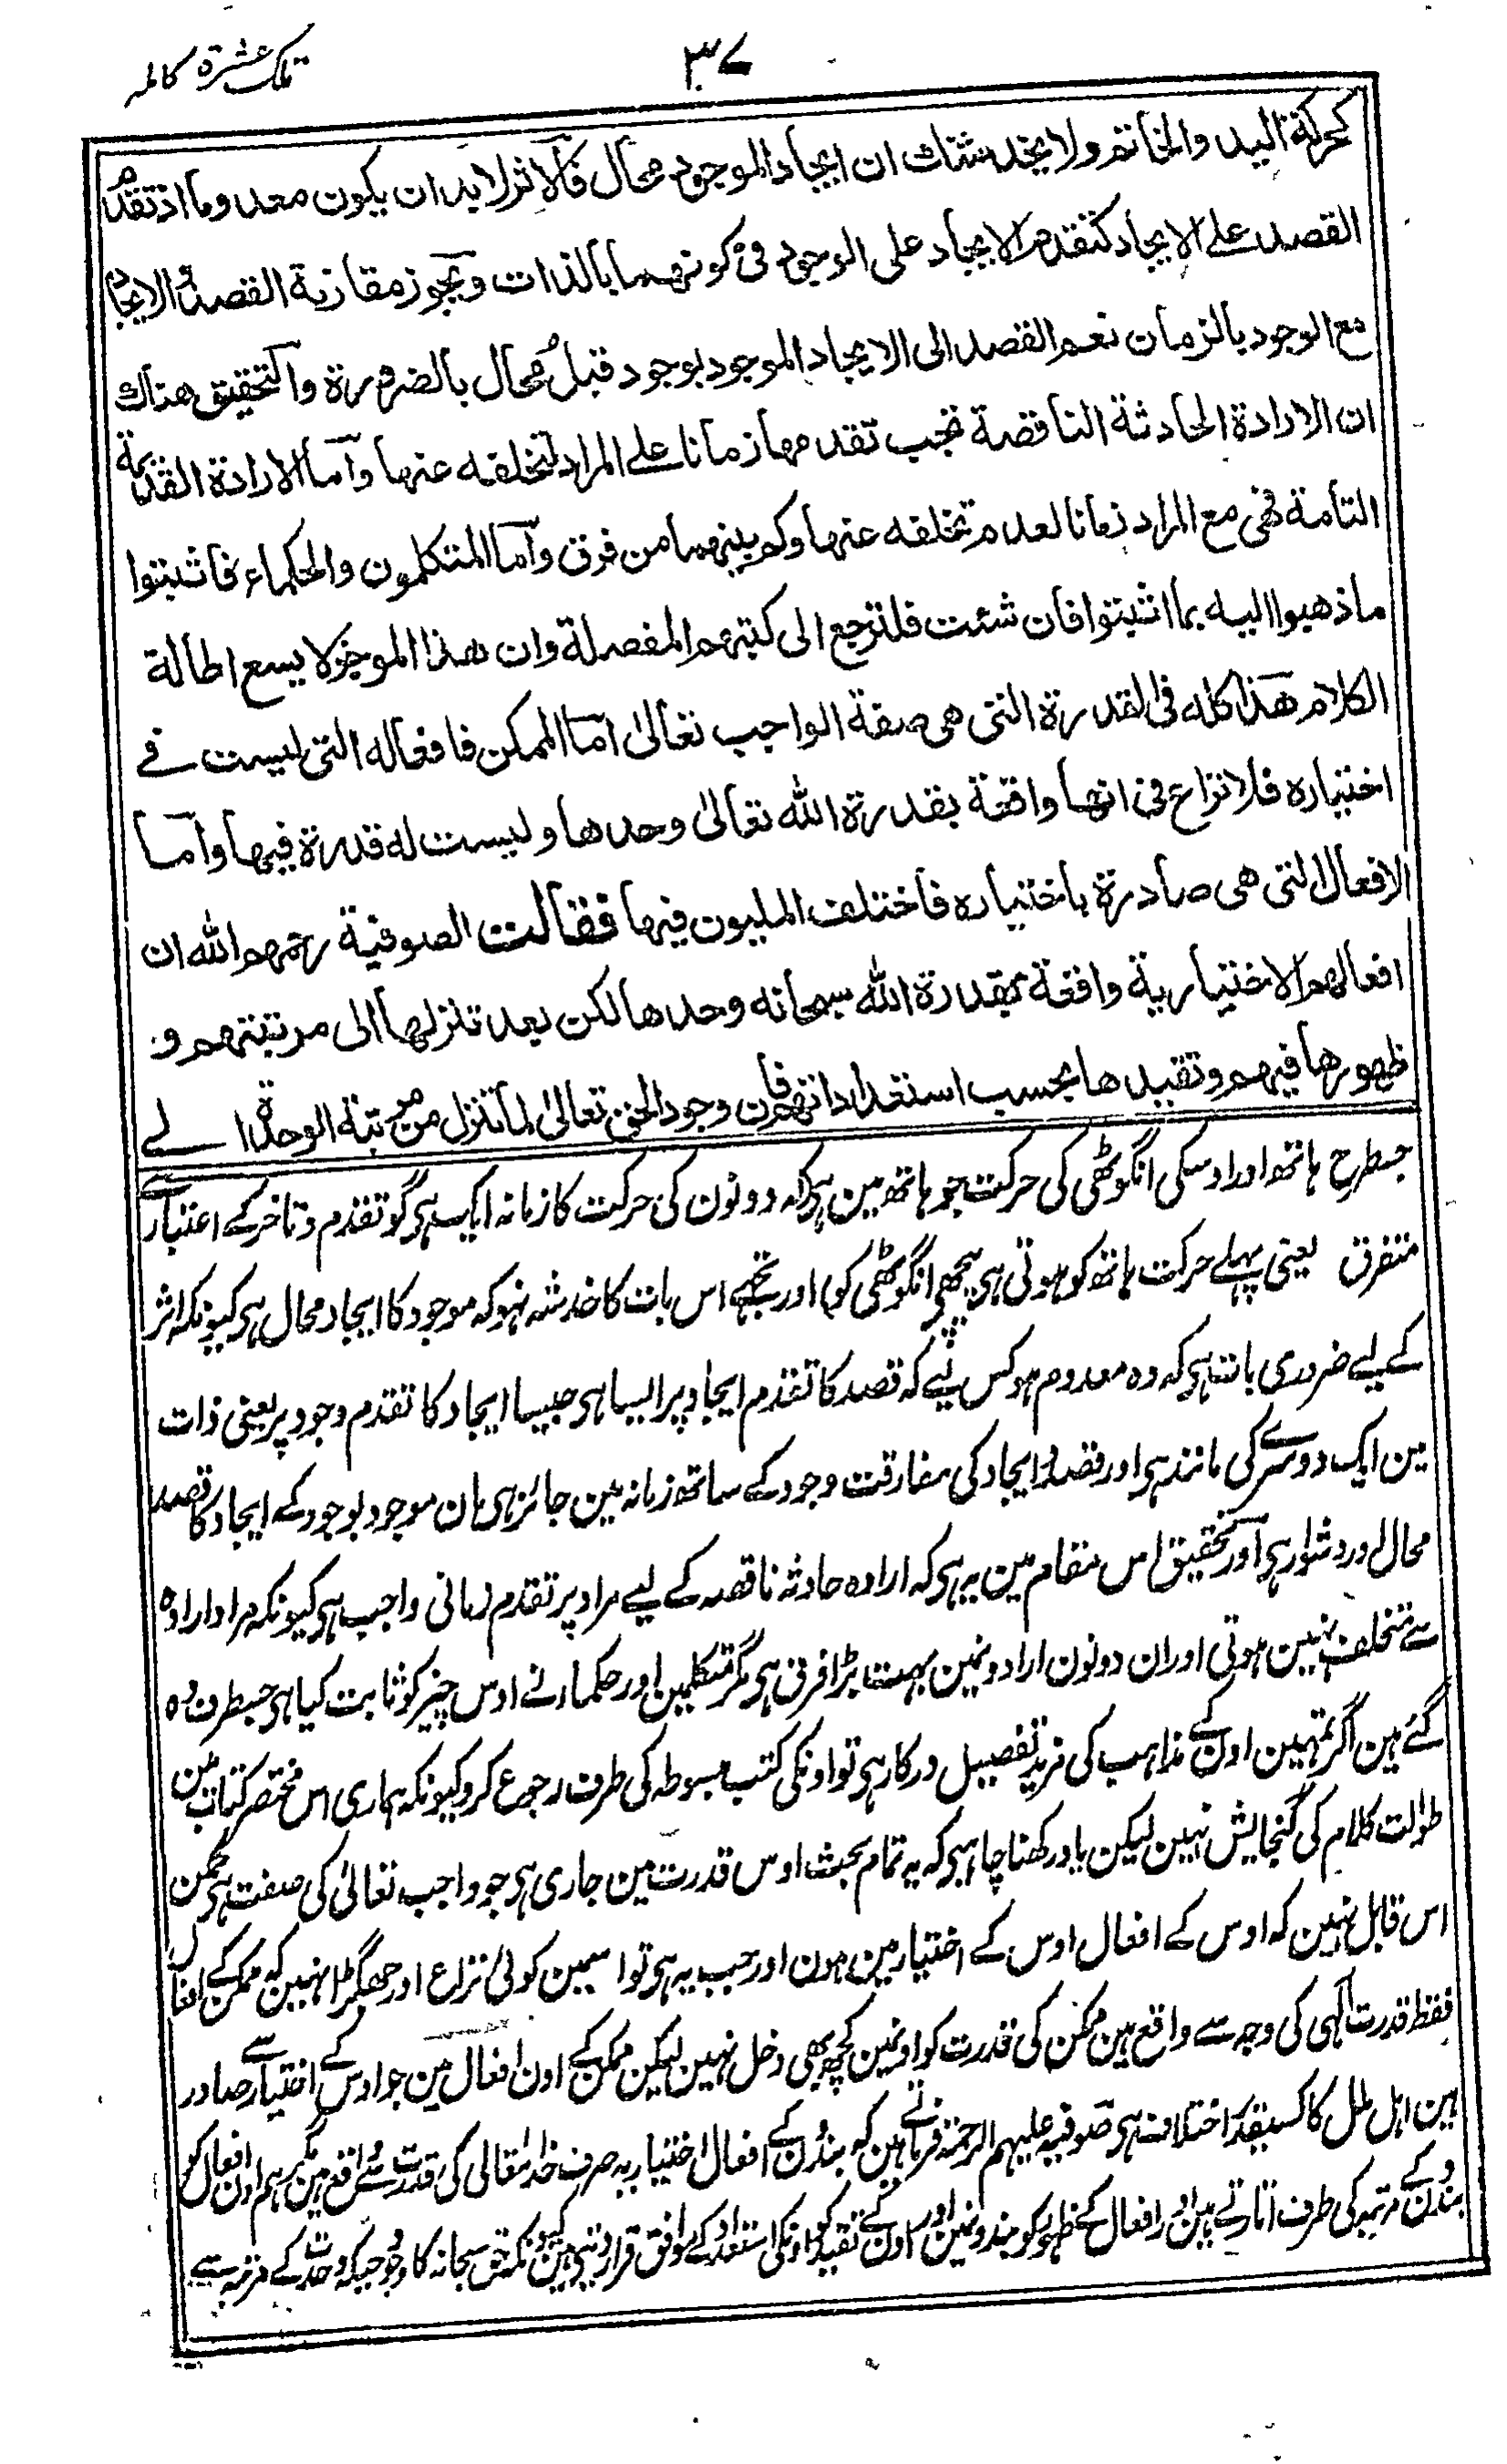 تلک عشرة کاملہ
۳۷
کحرکة الید والخاتم ولا یخدشنک ان ایجاد الموجود محال فالاثر لابد ان یکون معدوما اذ تقدم
القصد علی الایجاد کتقدم الایجاد علی الوجود فی کونهما بالذات ویجوز مقارنة القصد الایجاد
مع الوجود بالزمان نعم القصد الی الایجاد الموجود بوجود قبل محال بالضرورة والتحقیق هناک
ان الارادة الحادثة الناقصة یجب تقدمها زمانا علی المراد لتخلفه عنها واما الارادة القدیمة
التامة فهی مع المراد زمانا لعدم تخلفه عنها وکم بینهما من فرق واما المتکلمون والحکماء فاثبتوا
ماذهبوا الیه بما اثبتوا فان شئت فلترجع الی کتبهم المفصلة وان هذا الموجز لا یسع اطالة
الکلام هذا کله فی القدرة التی هی صفة الواجب تعالیٰ اما الممکن فافعاله التی لیست فے
اختیاره فلا نزاع فی انها واقعة بقدرة الله تعالیٰ وحدها ولیست له قدرة فیها واما
الافعال التی هی صادرة باختیاره فاختلف الملیون فیها فقالت الصوفیة رحمهم الله ان
افعالهم الاختیاریة واقعة بقدرة الله سبحانه وحدها لکن بعد تنزلها الی مرتبتهم و
ظهورها فیهم وتقیدها بحسب استعداداتهم فان وجود الحق تعالیٰ لما تنزل من مرتبة الوحدة الے
جسطرح ہاتھ اور اوسکی انگوٹھی کی حرکت جو ہاتھ مین ہی کہ دونون کی حرکت کا زمانہ ایک ہی گو تقدم و تاخر کے اعتبار سے
متفرق یعنی پہلے حرکت ہاتھ کو ہوتی ہی پیچھے انگوٹھی کو اور تجھے اس بات کا خدشہ نہو کہ موجود کا ایجاد محال ہی کیونکہ اثر
کے لیے ضروری بات ہی کہ وہ معدوم ہو کس لیے کہ قصد کا تقدم ایجاد پر ایسا ہی جیسا ایجاد کا تقدم وجود پر یعنی ذات
مین ایک دوسرے کی مانند ہی اور قصد ایجاد کی مقارنت وجود کے ساتھ زمانہ مین جائز ہی ہان موجود بوجود کے ایجاد کا قصد
محال اور دشوار ہی اور تحقیق اس مقام مین یہ ہی کہ ارادہ حادثہ ناقصہ کے لیے مراد پر تقدم زمانی واجب ہی کیونکہ مراد ارادہ
سے متخلف نہین ہوتی اور ان دونون ارادونمین بہت بڑا فرق ہی مگر متکلمین اور حکمار نے اوس چیز کو ثابت کیا ہی جسطرف وہ
گئے ہین اگر تمہین اون کے مذاہب کی مزید تفصیل درکار ہی تو اونکی کتب مبسوطہ کی طرف رجوع کرو کیونکہ ہماری اس مختصر کتاب مین
طوالت کلام کی گنجایش نہین لیکن یاد رکھنا چاہیے کہ یہ تمام بحث اوس قدرت مین جاری ہی جو واجب تعالیٰ کی صفت ہی ممکن
اس قابل نہین کہ اوس کے افعال اوس کے اختیار مین ہون اور جب یہ ہی تو اسمین کوئی نزاع اور جھگڑا نہین کہ ممکن کے افعال
فقط قدرت الٰہی کی وجہ سے واقع ہین ممکن کی قدرت کو اونمین کچھ بھی دخل نہین لیکن ممکن کے اون افعال مین جو اوس کے اختیار سے صادر
ہین اہل ملل کا کسیقدر اختلاف ہی صوفیہ علیہم الرحمۃ فرماتے ہین کہ بندون کے افعال اختیاریہ صرف خدا تعالی کی قدرت سے واقع ہین مگر ہم اون افعال کو
بندون کے مرتبہ کی طرف اتارتے ہین اور افعال کے ظہور کو بندونمین اور اون کے تقید کو اونکی استعداد کے موافق قرار دیتے ہین کیونکہ حق سبحانہ کا وجود جبکہ وحدت کے مرتبہ سے